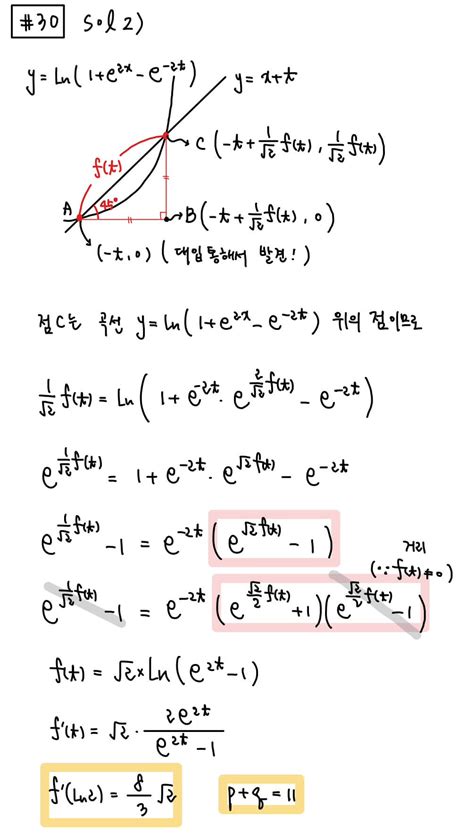 #30 sol 2)
y = ln(1+e^{2x} - e^{-2t})
y = x+t
C(-t + \frac{1}{√2}f(t), \frac{1}{√2}f(t))
f(t)
A
45°
B(-t + \frac{1}{√2}f(t), 0)
(-t, 0) (대입 통해서 발견!)
점 C는 곡선 y = ln(1+e^{2x} - e^{-2t}) 위의 점이므로
\frac{1}{√2}f(t) = ln(1 + e^{-2t} · e^{\frac{2}{√2}f(t)} - e^{-2t})
e^{\frac{1}{√2}f(t)} = 1 + e^{-2t} · e^{√2f(t)} - e^{-2t}
e^{\frac{1}{√2}f(t)} - 1 = e^{-2t}(e^{√2f(t)} - 1)
거리
(∵ f(t) ≠ 0)
e^{\frac{1}{√2}f(t)} - 1 = e^{-2t}(e^{\frac{√2}{2}f(t)} + 1)(e^{\frac{√2}{2}f(t)} - 1)
f(t) = √2 × ln(e^{2t} - 1)
f'(t) = √2 · \frac{2e^{2t}}{e^{2t} - 1}
f'(ln2) = \frac{8}{3}√2
p+q = 11